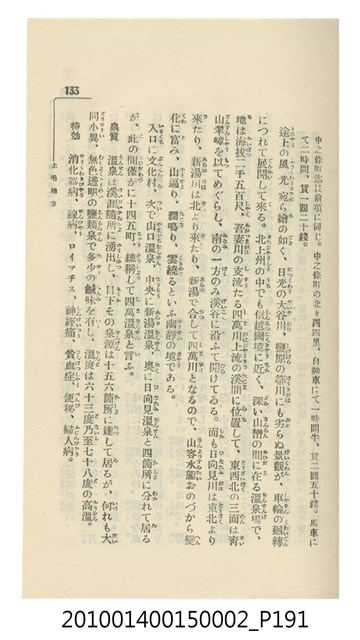 133
上毛地方
中之條町迄は前項に同じ。中之條町の北々西四里、自動車にて一時間半、賃二圓五十錢。馬車に
て二時間、賃一圓二十錢。
途上の風光宛ら繪の如く、日光の大谷川、鹽原の箒川にも劣らぬ景觀が、車輪の廻轉
につれて展開して來る。北上州の中でも信越國境に近く、深い山巒の間に在る溫泉場で、
地は海拔二千五百尺、吾妻川の支流たる四萬川上流の溪間に位置して、東西北の三面は靑
山翠嶂を以てめぐらし、南の一方のみ溪谷に沿ふて開けてゐる。而も日向見川は東北より
來たり、新湯川は北より來たり、新湯で合して四萬川となるので、山容水態おのづから變
化に富み、山逼り、澗鳴り、雲繞るといふ幽靜の境である。
入口に文化村、次で山口溫泉、中央に新湯溫泉、奧に日向見溫泉と四箇所に分れて居る
が、此の間僅かに十四五町、總稱して四萬溫泉と言ふ。
泉質 溫泉は溪涯隨所に湧出し、目下その泉源は十五六箇所に達して居るが、何れも大
同小異、無色透明の鹽類泉で多少の鹹味を有し、溫度は六十三度乃至七十八度の高溫。
特効 消化器病、ロイマチス、神經痛、貧血症、便秘、婦人病。
201001400150002_P191